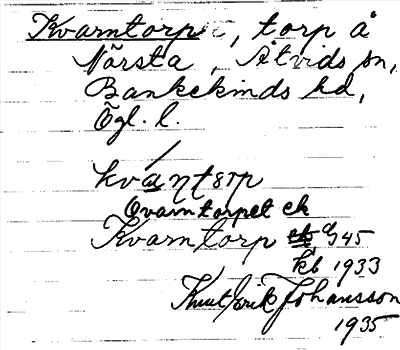 Kvarntorpet, torp å
Närsta, Åtvids sn,
Bankekinds hd,
Ögl. l.
kvaɳtɘrp
Qvarntorpet ek G45
Kvarntorp kb 1933
Knut Erik Johansson
1935